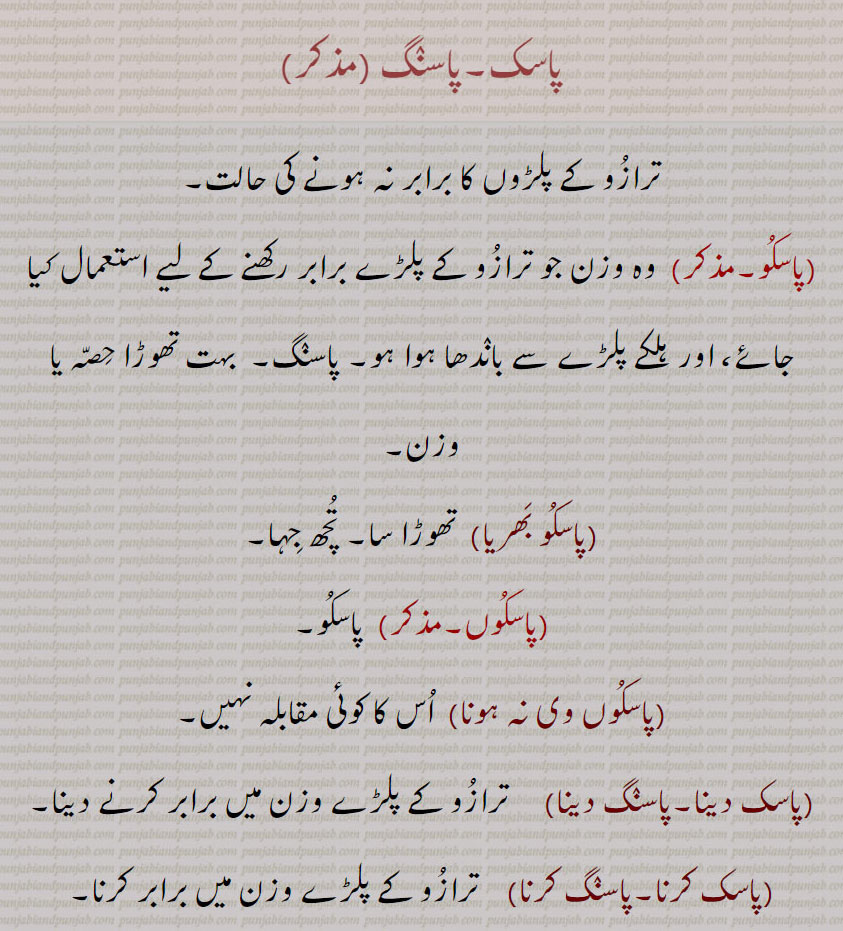 پاسک۔پاسنْگ (مذکر)
ترازُو کے پلڑوں کا برابر نہ ہونے کی حالت۔
(پاسکُو۔مذکر) وہ وزن جو ترازُو کے پلڑے برابر رکھنے کے لیے استعمال کیا
جائے، اور ہلکے پلڑے سے بانْدھا ہوا ہو۔ پاسنْگ۔ بہت تھوڑا حِصّہ یا
وزن۔
(پاسکُو بَھریا) تھوڑا سا۔ تُچھ جِہا۔
(پاسکُوں۔مذکر) پاسکُو۔
(پاسکُوں وی نہ ہونا) اُس کا کوئی مقابلہ نہیں۔
(پاسک دینا۔پاسنْگ دینا) ترازُو کے پلڑے وزن میں برابر کرنے دینا۔
(پاسک کرنا۔پاسنْگ کرنا) ترازُو کے پلڑے وزن میں برابر کرنا۔